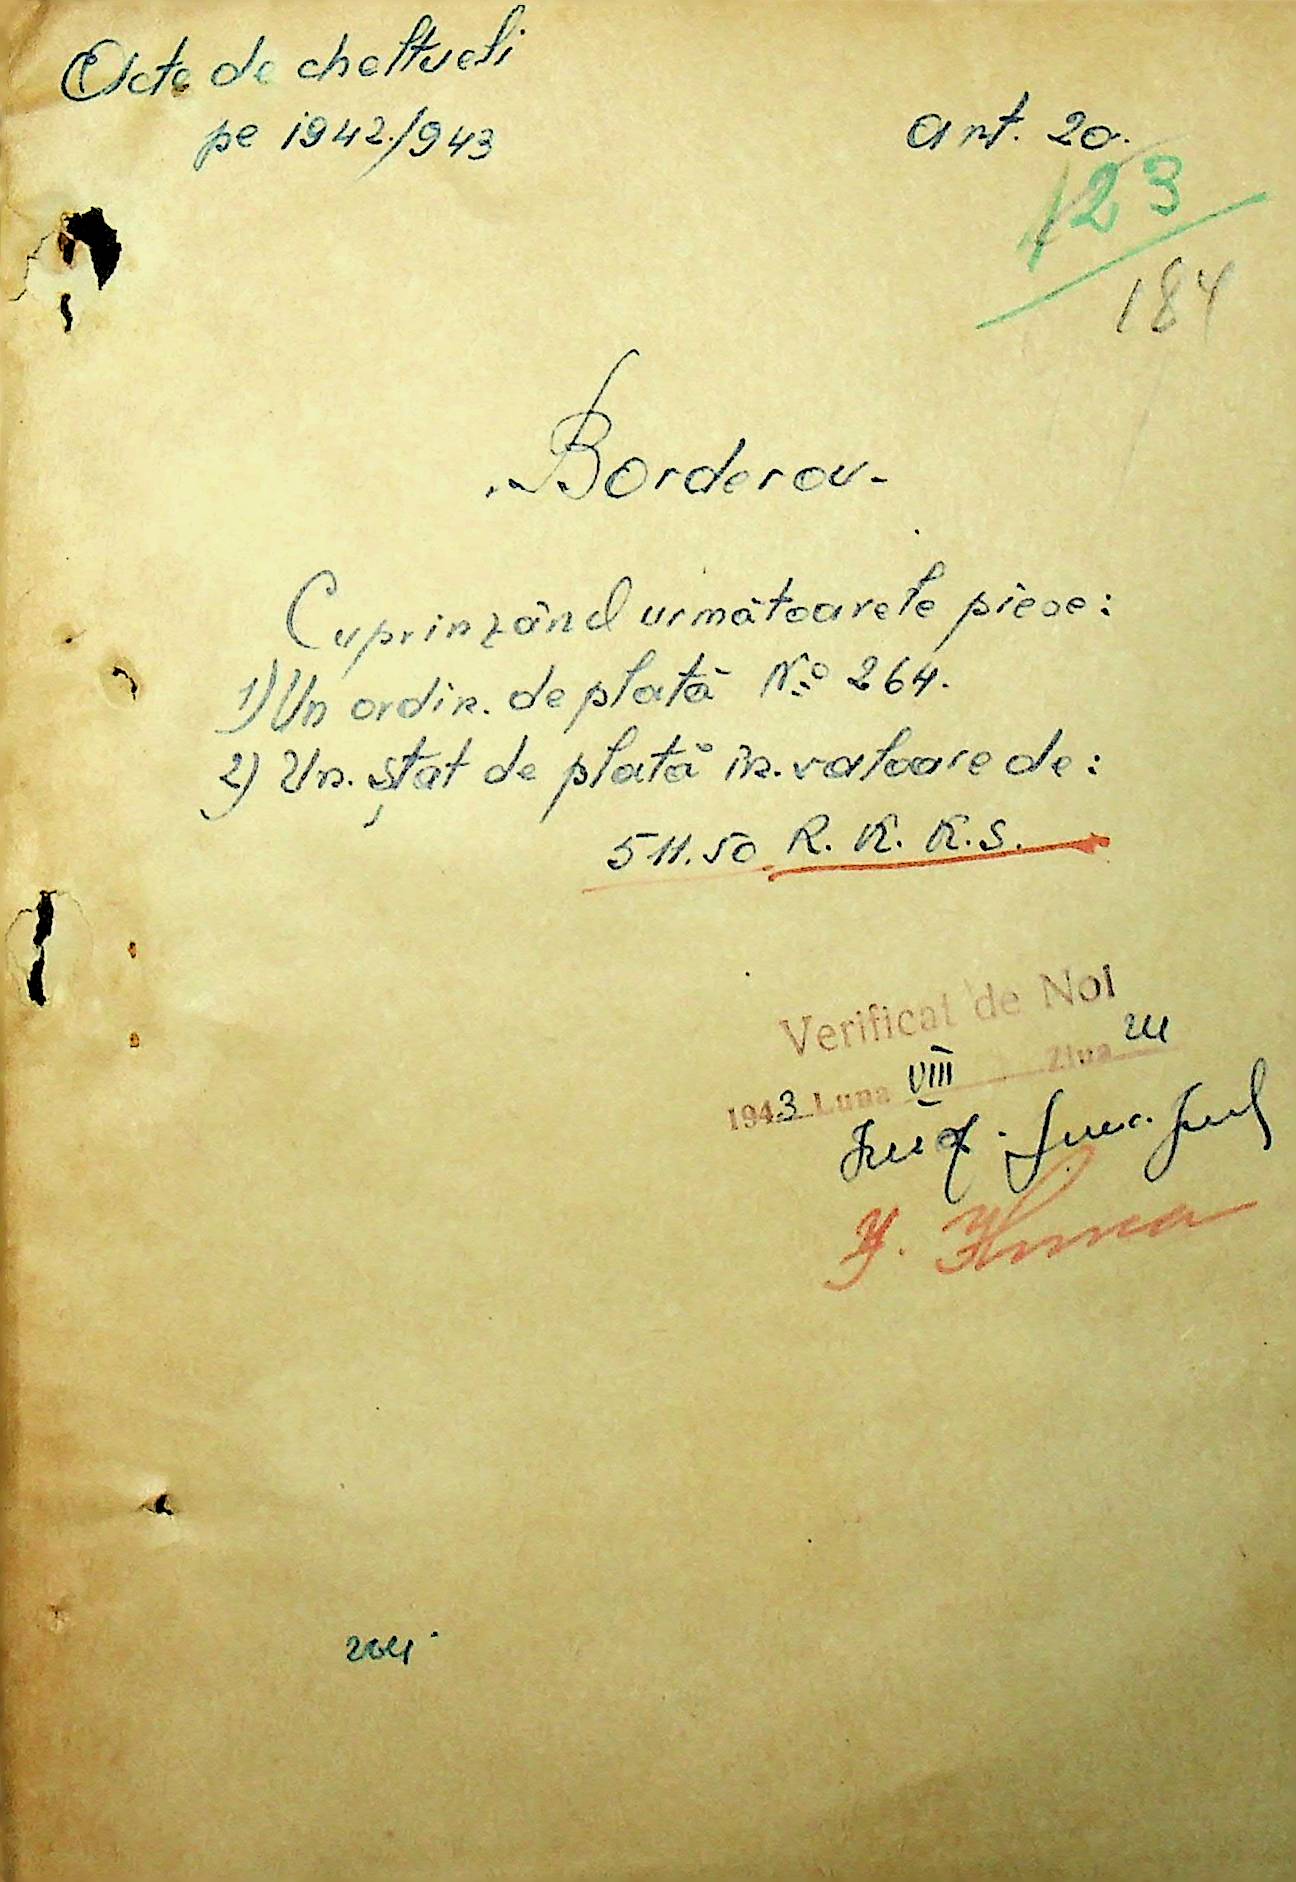 Acte de cheltueli
pe 1942/943
art. 20.
123
184
Borderou-
Cuprinzând următoarele piese:
1) Un ordin. de plată No 264.
2) Un. ștat de plată în. valoare de:
511.50 R. K. K. S.
Verificat de Noi
1943 Luna VIII Ziua 24
264